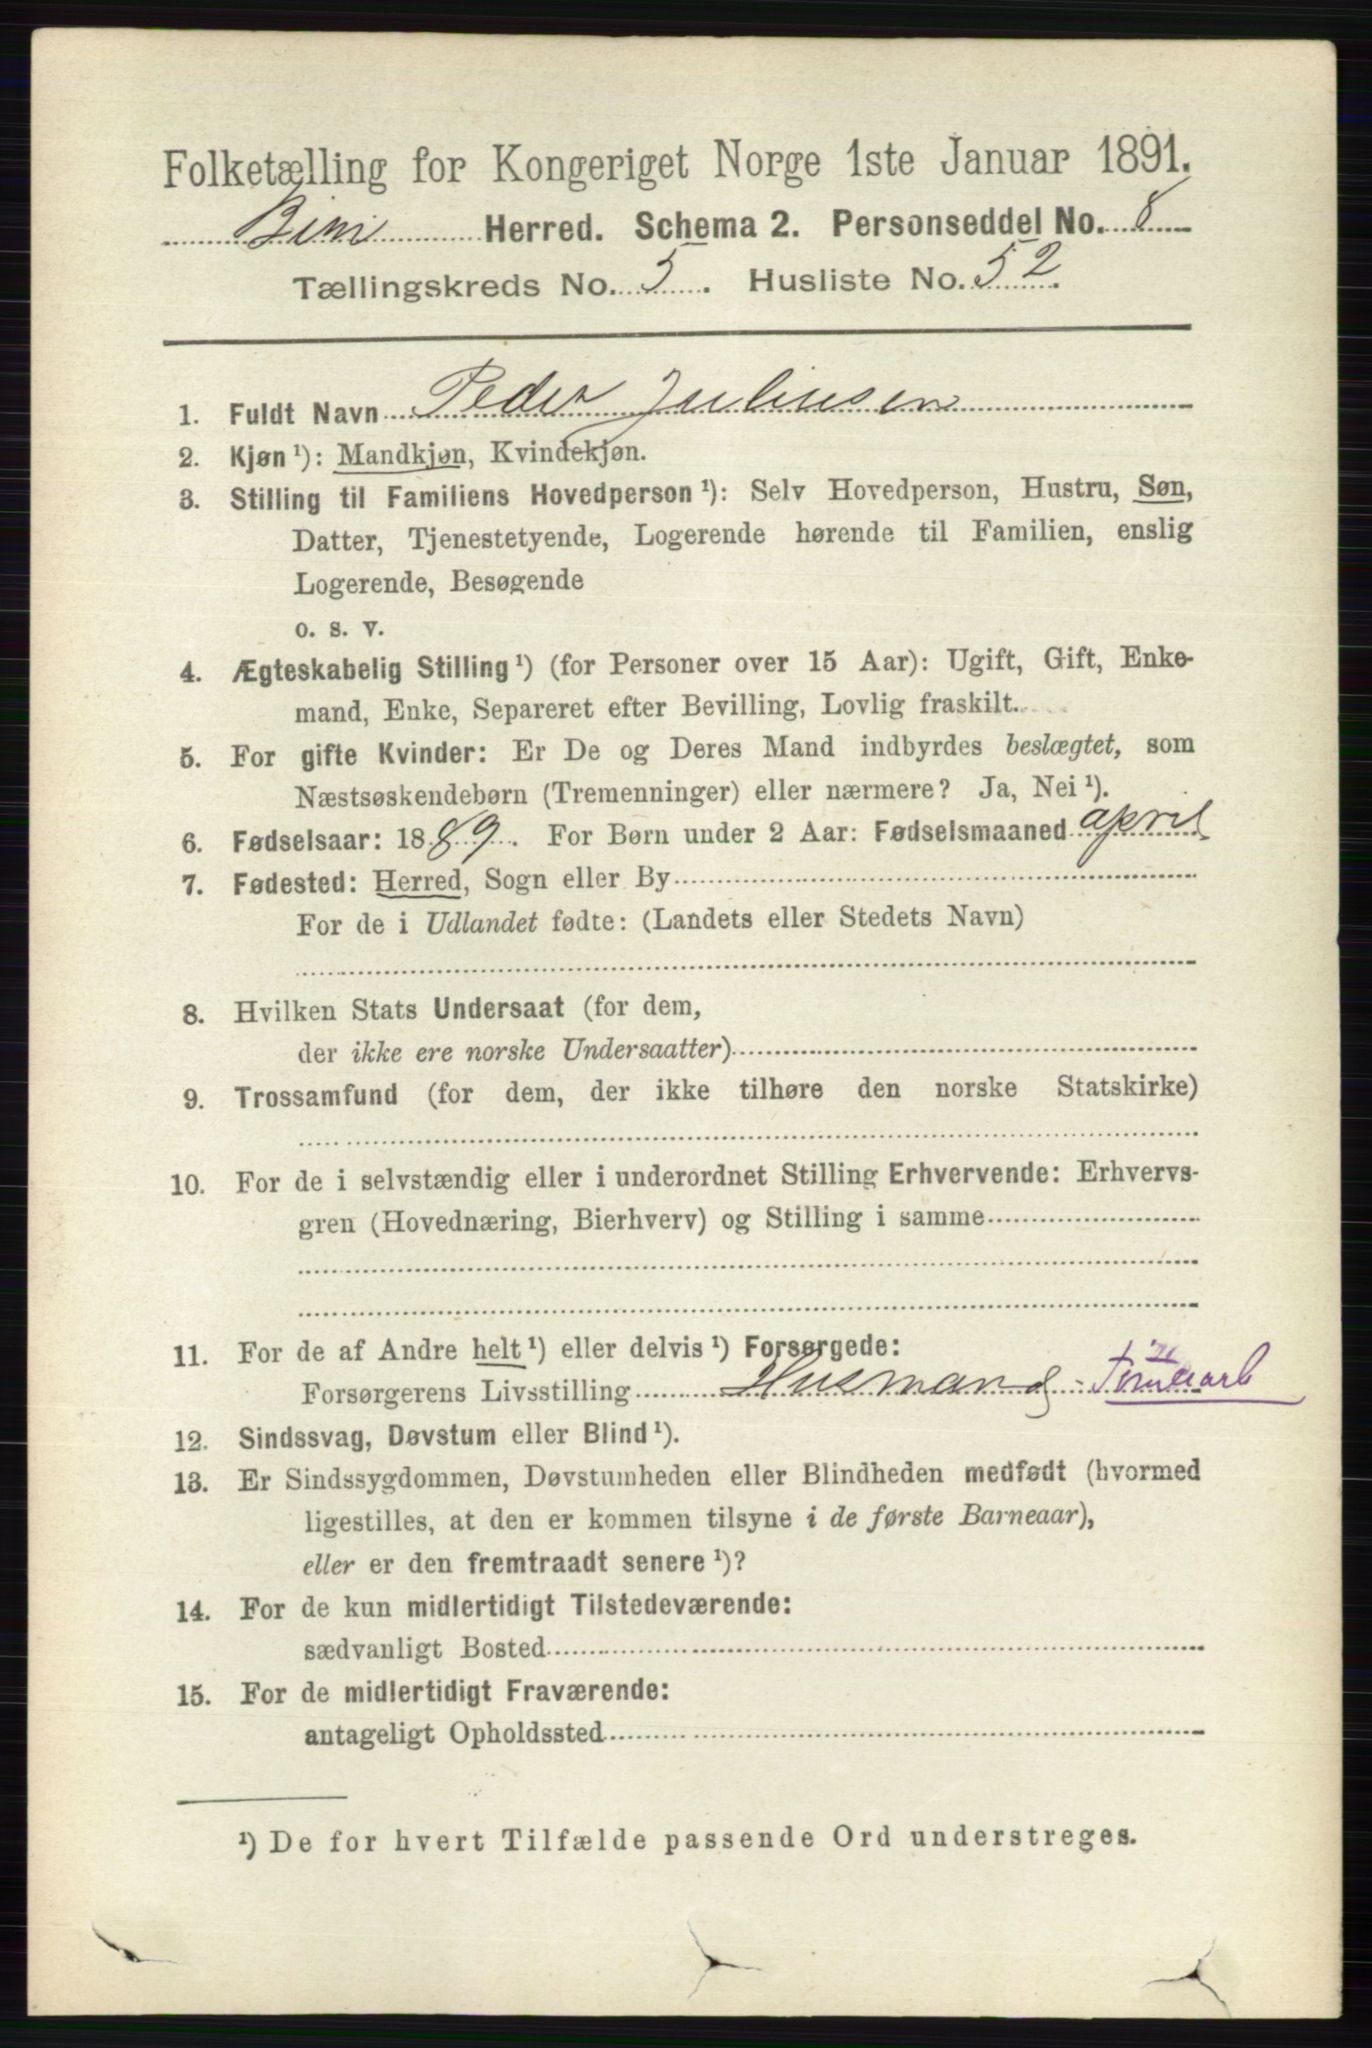 Folketælling for Kongeriget Norge 1ste Januar 1891.
Biri Herred. Schema 2. Personseddel No. 8
Tællingskreds No. 5. Husliste No. 52.
1. Fuldt Navn Peder Juliusen
2. Kjøn ¹): Mandkjøn, Kvindekjøn.
3. Stilling til Familiens Hovedperson ¹): Selv Hovedperson, Hustru, Søn,
Datter, Tjenestetyende, Logerende hørende til Familien, enslig
Logerende, Besøgende
o. s. v.
4. Ægteskabelig Stilling ¹) (for Personer over 15 Aar): Ugift, Gift, Enke-
mand, Enke, Separeret efter Bevilling, Lovlig fraskilt.
5. For gifte Kvinder: Er De og Deres Mand indbyrdes beslægtet, som
Næstsøskendebørn (Tremenninger) eller nærmere? Ja, Nei ¹).
6. Fødselsaar: 1889. For Børn under 2 Aar: Fødselsmaaned april
7. Fødested: Herred, Sogn eller By
For de i Udlandet fødte: (Landets eller Stedets Navn)
8. Hvilken Stats Undersaat (for dem,
der ikke ere norske Undersaatter)
9. Trossamfund (for dem, der ikke tilhøre den norske Statskirke)
10. For de i selvstændig eller i underordnet Stilling Erhvervende: Erhvervs-
gren (Hovednæring, Bierhverv) og Stilling i samme
11. For de af Andre helt ¹) eller delvis ¹) Forsørgede:
Forsørgerens Livsstilling Husmand
12. Sindssvag, Døvstum eller Blind ¹).
13. Er Sindssygdommen, Døvstumheden eller Blindheden medfødt (hvormed
ligestilles, at den er kommen tilsyne i de første Barneaar),
eller er den fremtraadt senere ¹)?
14. For de kun midlertidigt Tilstedeværende:
sædvanligt Bosted
15. For de midlertidigt Fraværende:
antageligt Opholdssted
¹) De for hvert Tilfælde passende Ord understreges.